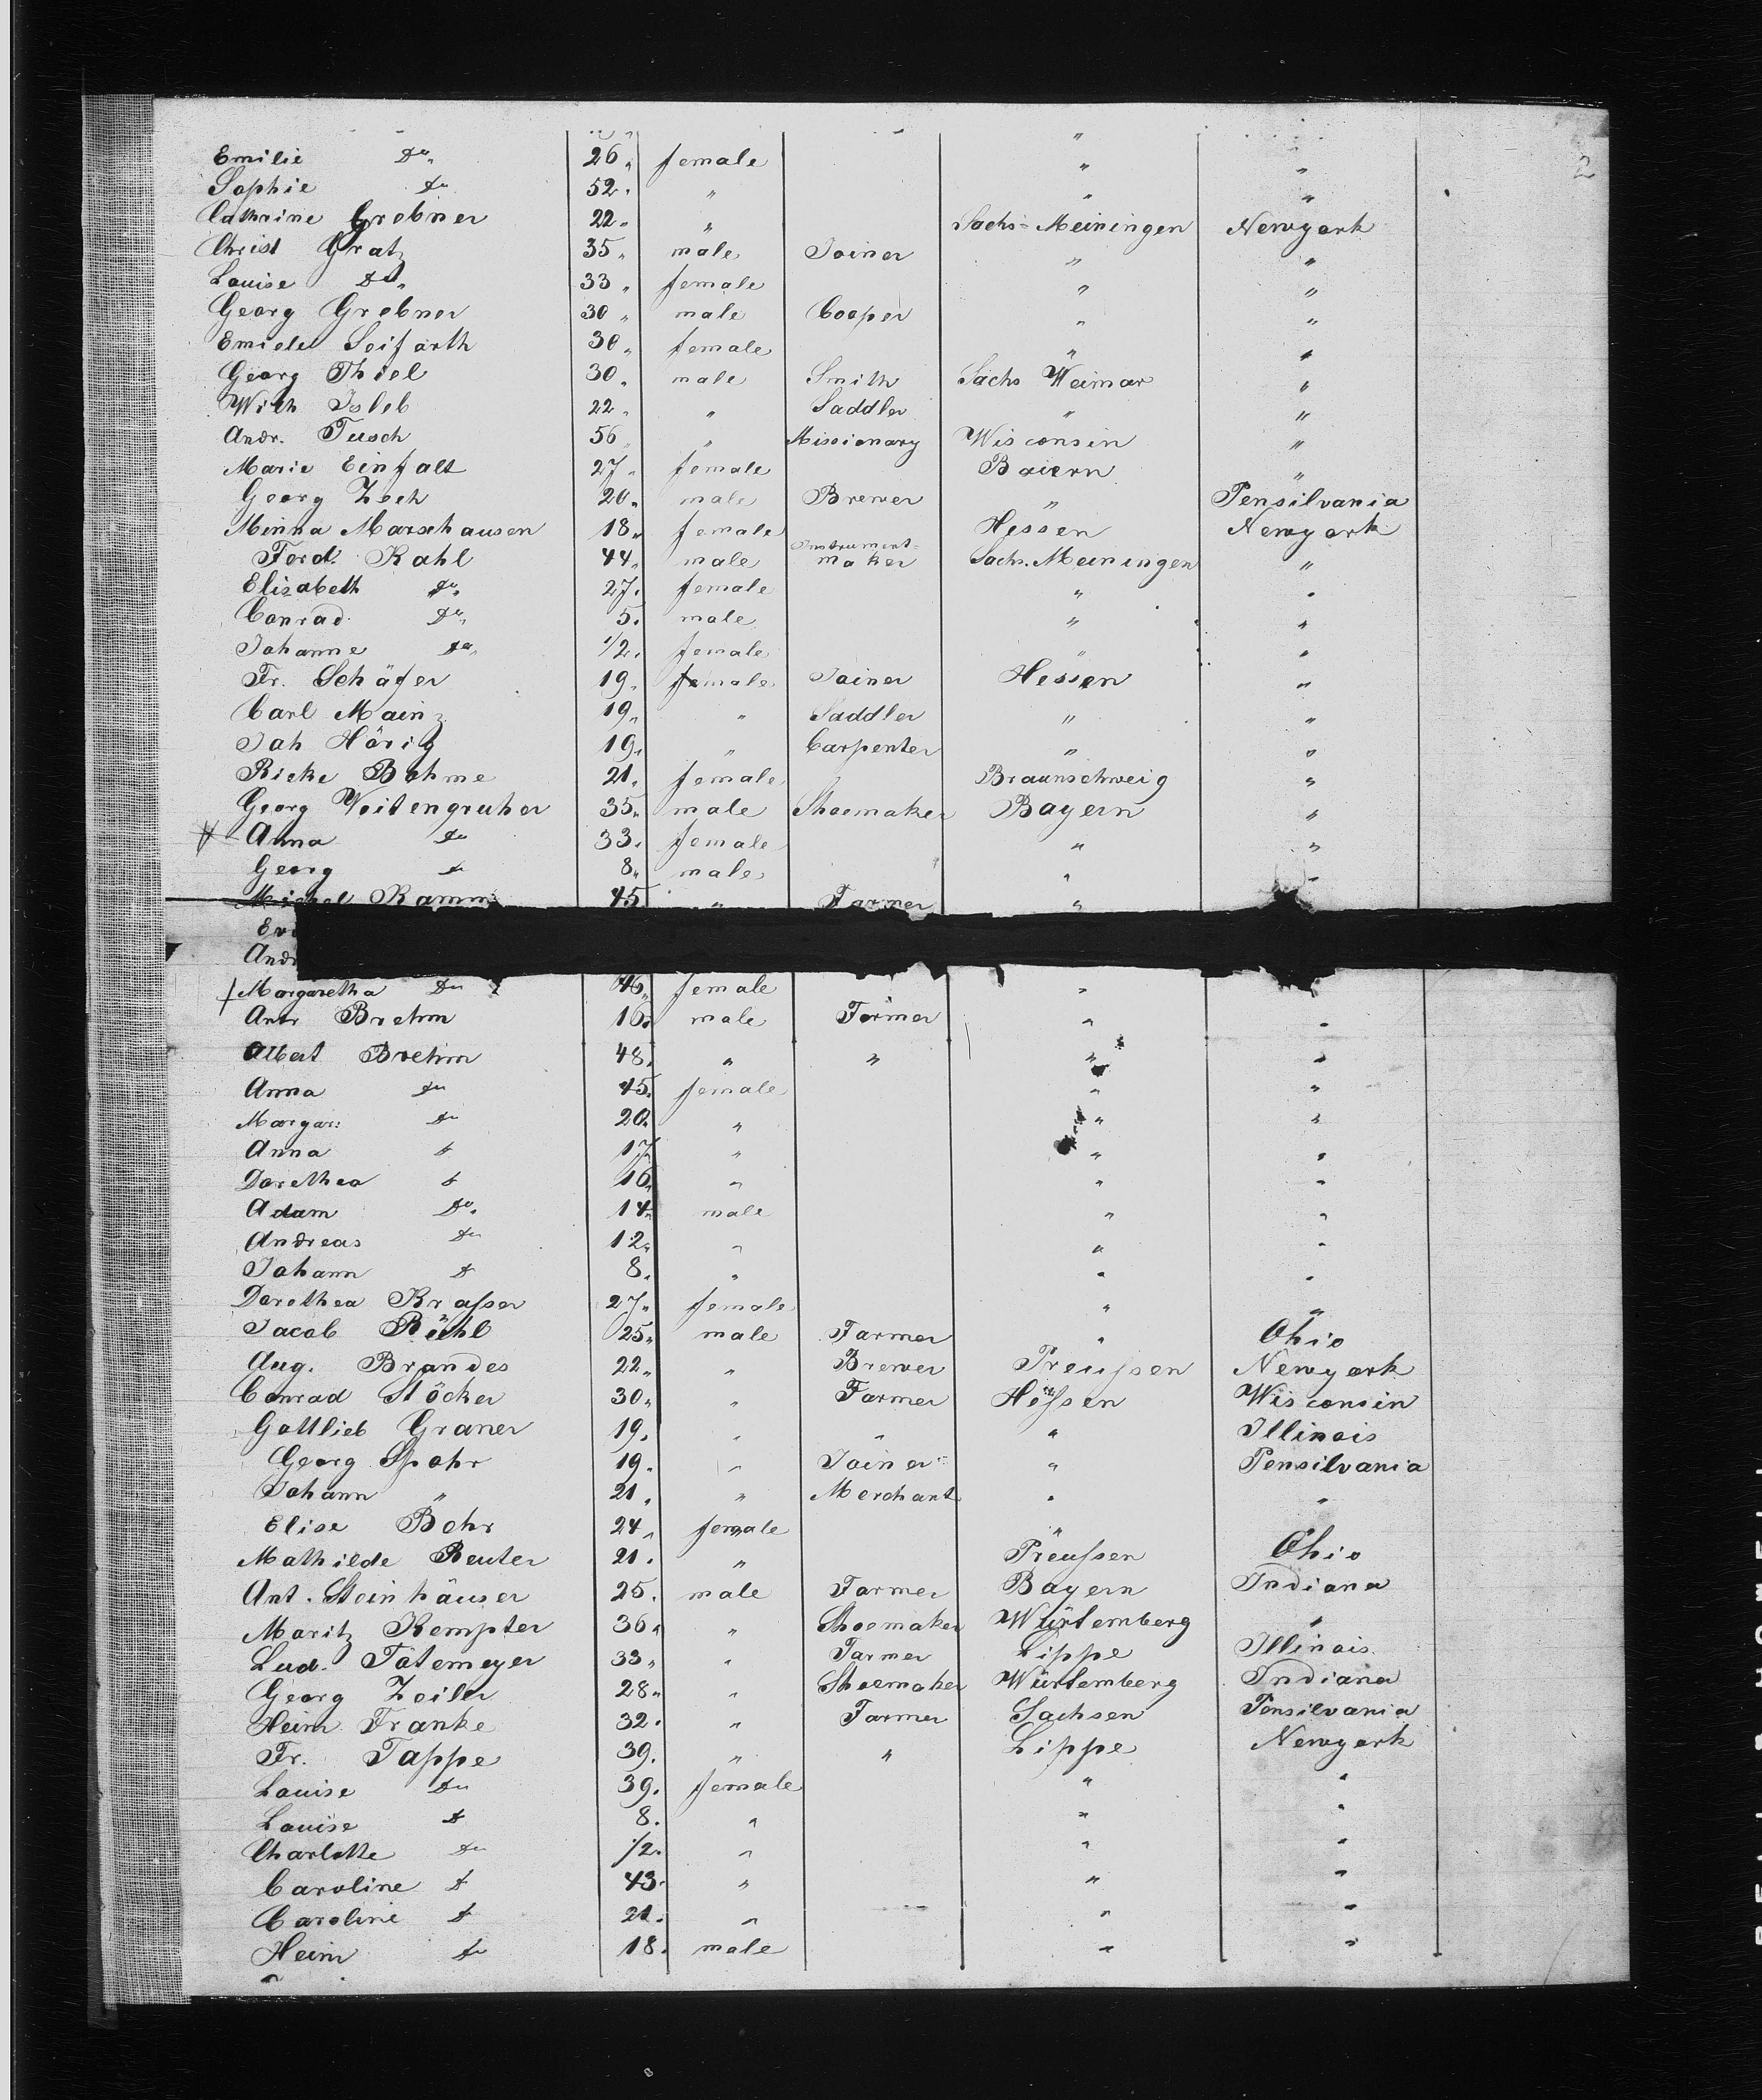 2
Emilie do 26 female " "
Sophie do 52 " " "
Cathrine Grebner 22 " Sachs-Meiningen Newyork
Christ Gratz 35 male Joiner " "
Louise do 33 female " "
Georg Grebner 30 male Cooper " "
Emiele Seifarth 30 female " "
Georg Thiel 30 male Smith Sachs Weimar "
Wilh Isleb 22 " Saddler " "
Andr. Tusch 56 " Missionary Wisconsin "
Marie Einfalt 27 female Baiern "
Georg Zech 20 male Brewer " Pensilvania
Minna Marschausen 18 female Hessen Newyork
Ferd. Kahl 44 male Instrument-maker Sachs. Meiningen "
Elisabeth do 27 female " "
Conrad do 5 male " "
Johanne do 1/2 female " "
Fr. Schäfer 19 male Joiner Hessen "
Carl Mainz 19 " Saddler " "
Joh Hörig 19 " Carpenter " "
Rieke Bohme 21 female Braunschweig "
Georg Veitengruher 35 male Shoemaker Bayern "
Anna do 33 female " "
Georg do 8 male " "
Michel Ramm 45 " Farmer "
Margaretha do 46 female "
Andr Brehm 16 male Farmer " "
Albert Brehm 48 " " " "
Anna do 45 female " "
Margar: do 20 " " "
Anna do 17 " " "
Dorethea do 16 " " "
Adam do 14 male " "
Andreas do 12 " " "
Johann do 8 " " "
Dorothea Krasser 27 female " "
Jacob Rühl 25 male Farmer " Ohio
Aug. Brandes 22 " Brewer Preussen Newyork
Conrad Stöcker 30 " Farmer Hessen Wisconsin
Gottlieb Graner 19 " " " Illinois
Georg Spohr 19 " Joiner " Pensilvania
Johann " 21 " Merchant " "
Elise Bohr 24 female "
Mathilde Reuter 21 " Preussen Ohio
Ant. Steinhäuser 25 male Farmer Bayern Indiana
Moritz Kempter 36 " Shoemaker Würtemberg "
Lud. Tötemeyer 33 " Farmer Lippe Illinois
Georg Zeiler 28 " Shoemaker Würtemberg Indiana
Heinr Franke 32 " Farmer Sachsen Pensilvania
Fr. Tappe 39 " " Lippe Newyork
Louise do 39 female " "
Louise do 8 " " "
Charlotte do 1/2 " " "
Caroline do 43 " " "
Caroline do 21 " " "
Heinr do 18 male " "